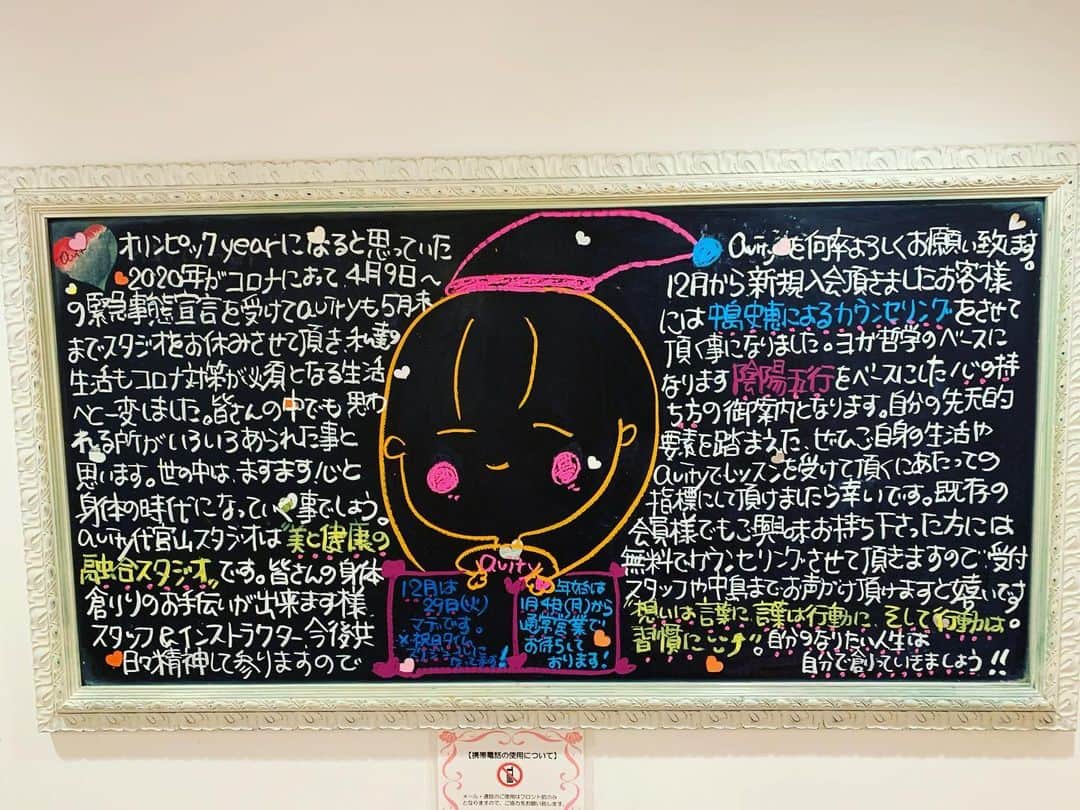 オリンピックyearになると思っていた
2020年がコロナによって4月9日〜
の緊急事態宣言を受けてauityも5月末
までスタジオをお休みさせて頂き私達の
生活もコロナ対策が必須となる生活
へと一変しました。皆さんの中でも思わ
れる所がいろいろあられた事と
思います。世の中は、ますます心と
身体の時代になっていく事でしょう。
auity代官山スタジオは"美と健康の
融合スタジオ"です。皆さんの身体
創りのお手伝いが出来ます様
スタッフ&インストラクター今後共
日々精神して参りますので
auityを何卒よろしくお願い致します。
12月から新規入会頂きましたお客様
には中島史恵によるカウンセリングをさせて
頂く事になりました。ヨガ哲学のベースに
なります陰陽五行をベースにした心の持
ち方の御案内となります。自分の先天的
要素を踏まえた、ぜひご自身の生活や
auityでレッスンを受けて頂くにあたっての
指標にして頂けましたら幸いです。既存の
会員様でもご興味お持ち下さった方には
無料でカウンセリングさせて頂きますので受付
スタッフや中島までお声がけ頂けますと嬉しいです。
"想いは言葉に、言葉は行動に、そして行動は
習慣に"。自分のなりたい人生は
自分で創っていきましょう!!
auity
12月は
29日(火)
マデです。
※祝日タイムに
なってます!
年始は
1月4日(月)から
通常営業で
お待ちして
おります!
【携帯電話の使用について】
メール・通話のご使用はフロント前のみ
となりますので、ご協力をお願い致します。